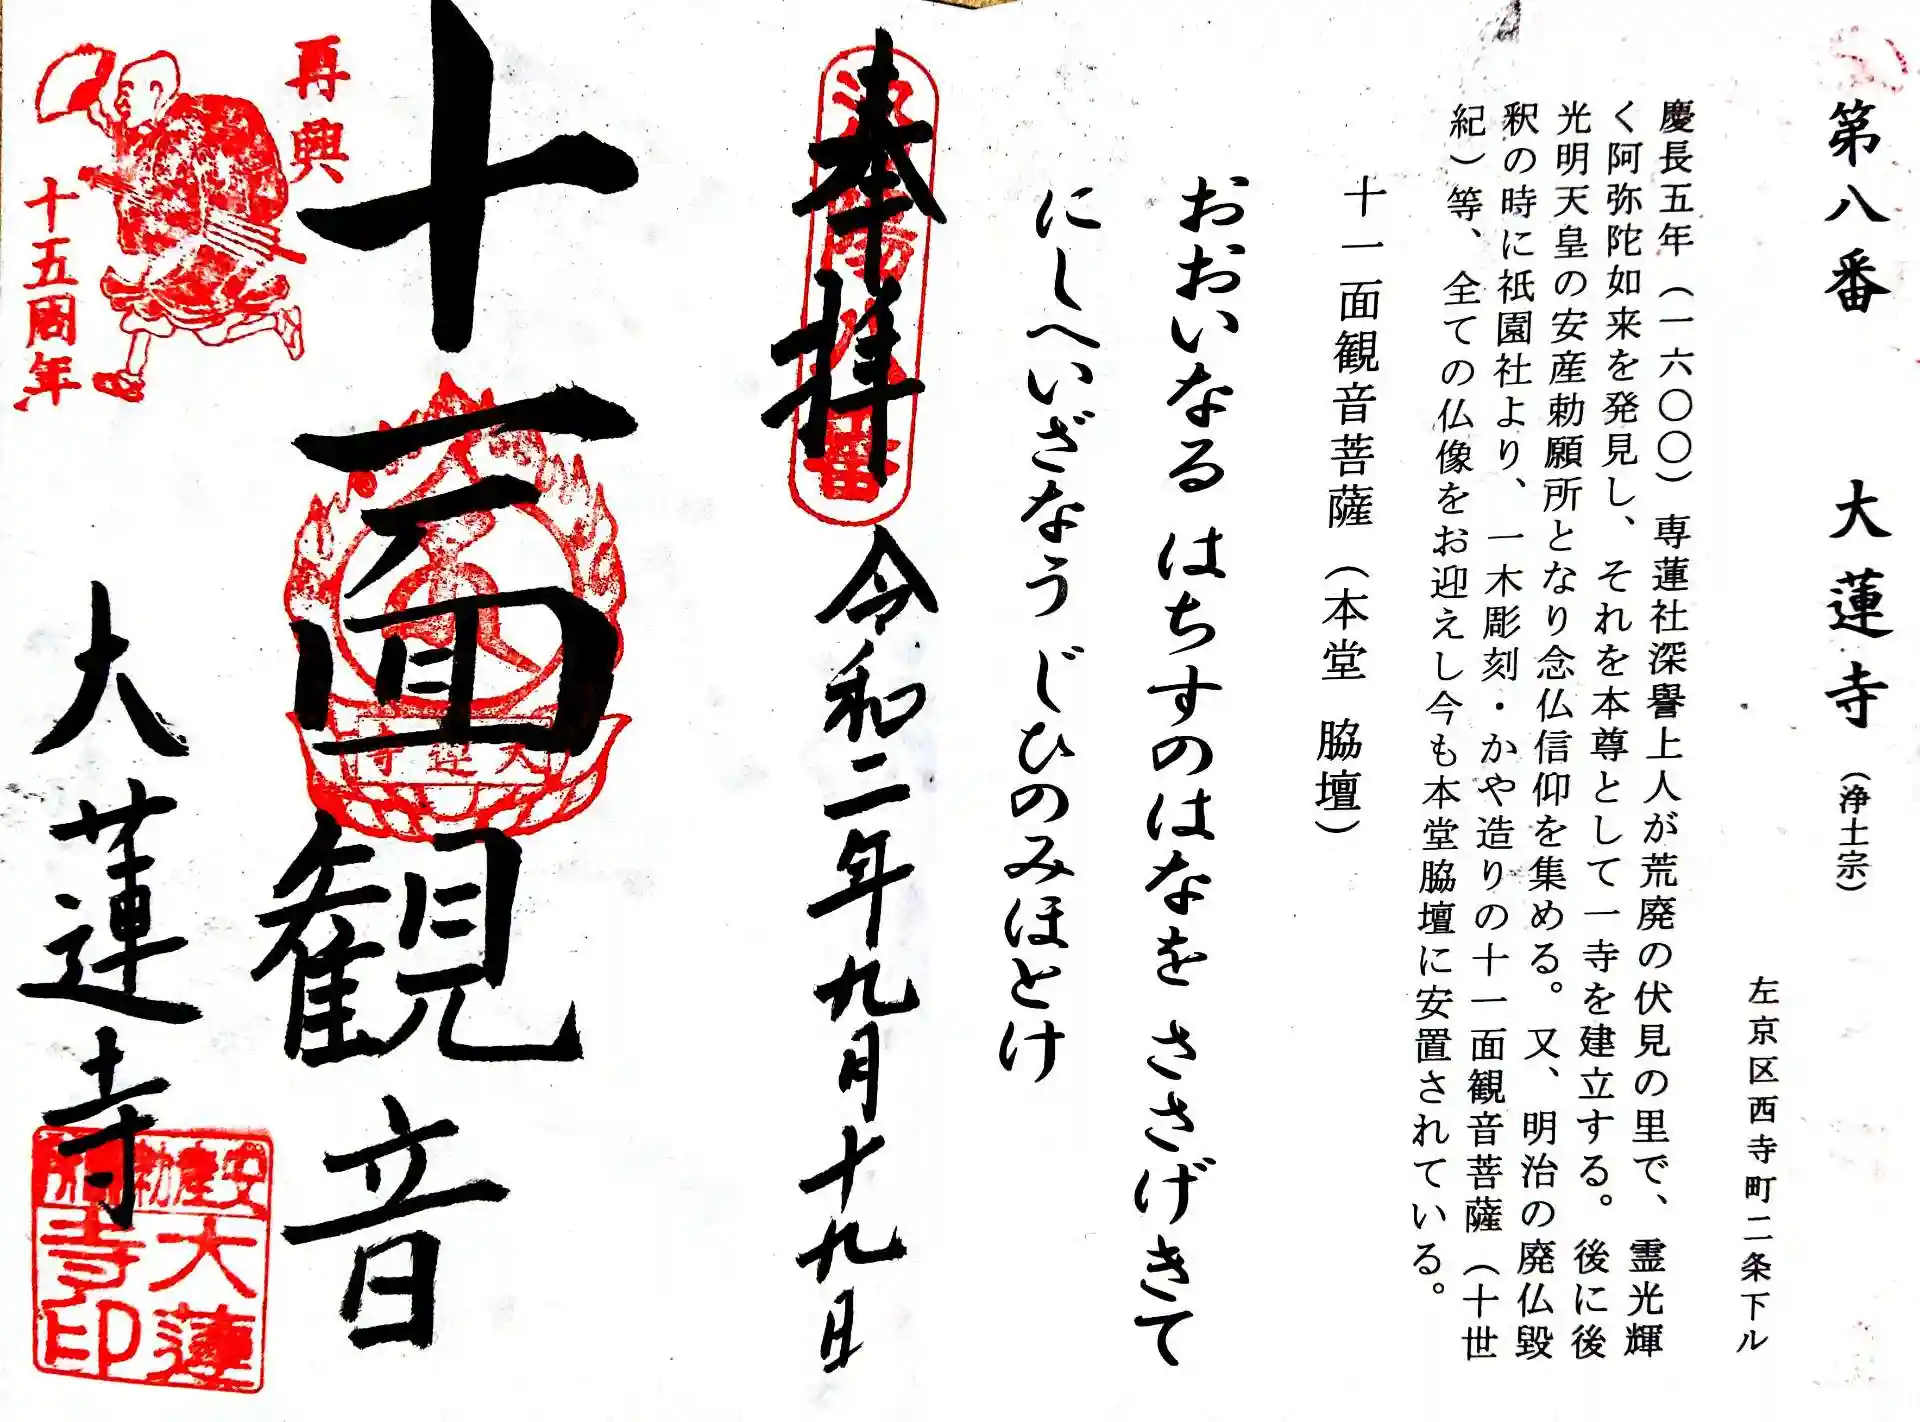 第八番　大蓮寺（浄土宗）
左京区西寺町二条下ル
慶長五年（一六〇〇）専蓮社深譽上人が荒廃の伏見の里で、霊光輝
く阿弥陀如来を発見し、それを本尊として一寺を建立する。後に後
光明天皇の安産勅願所となり念仏信仰を集める。又、明治の廃仏毀
釈の時に祇園社より、一木彫刻・かや造りの十一面観音菩薩（十世
紀）等、全ての仏像をお迎えし今も本堂脇壇に安置されている。
十一面観音菩薩（本堂　脇壇）
おおいなる はちすのはなを ささげきて
にしへいざなう じひのみほとけ
奉拝
令和二年九月十九日
十一面観音
大蓮寺
再興
十五周年
大蓮寺
安産勅願
大蓮
寺印